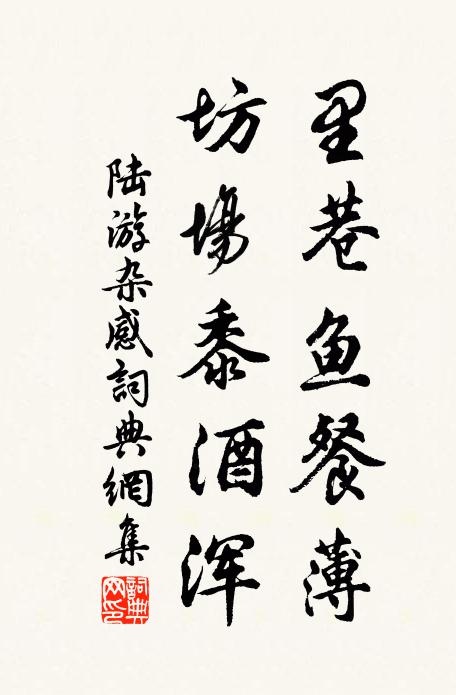 里巷鱼餐薄
坊場黍酒浑
陆游杂感詞典網集
詞典网印